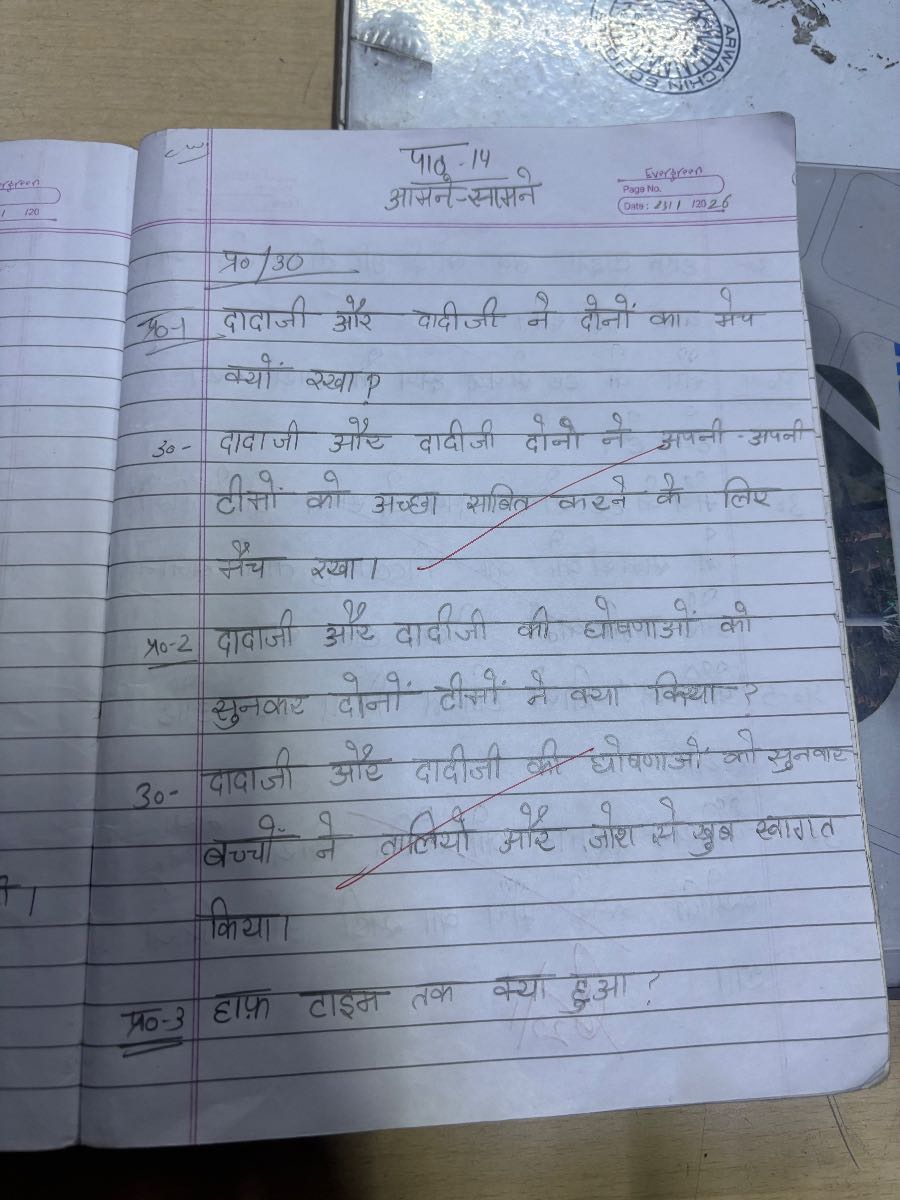 ARWACHIN
cw
पाठ - 14
आमने-सामने
Evergreen
Page No.
Date: 23/1/2026
vergreen
120
प्र०/उ०
प्र०-1 दादाजी और दादीजी ने दोनों का मेच
क्यों रखा?
उ०- दादाजी और दादीजी दोनो ने अपनी-अपनी
टीमों को अच्छा साबित करने के लिए
मैच रखा।
प्र०-2 दादाजी और दादीजी की घोषणाओं को
सुनकर दोनों टीमों ने क्या किया?
उ०- दादाजी और दादीजी की घोषणाओं को सुनकर
बच्चों ने तालियों और जोश से खुब स्वागत
किया।
प्र०-3 हाफ़ टाइम तक क्या हुआ?